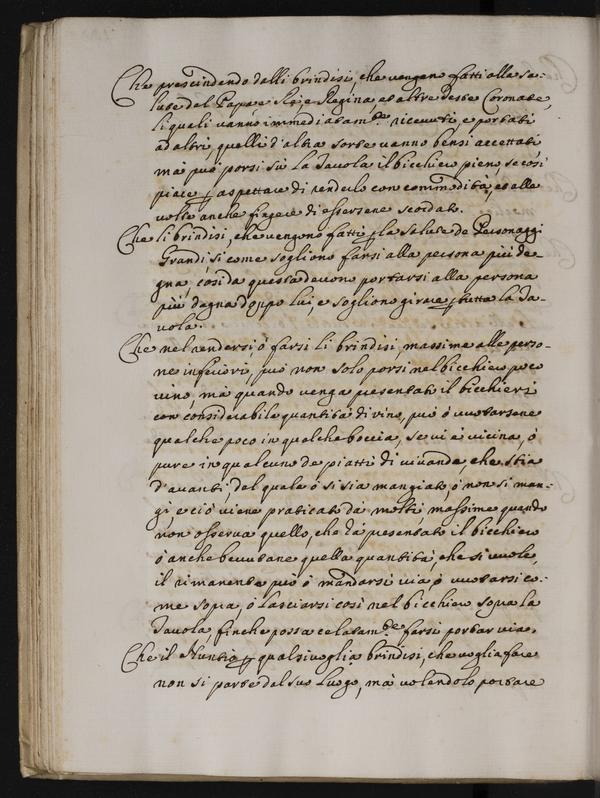 Che prescindendo dalli brindisi, che vengono fatti alla sa-
lute del Papa e Rè, e Regina, et altre Teste Coronate,
li quali vanno immediatam.te ricevuti, e portati
ad altri, quelli d'altra sorte vanno bensi accettati
mà può porsi sù la Tavola il bicchiero pieno, se così
piace p aspettare di renderlo con commodità, et alle
volte anche fingere di essersene scordato.
Che li brindisi, che vengono fatti p la salute de Personaggi
Grandi si come sogliono farsi alla persona più de-
gna, così da questa devono portarsi alla persona
più degna doppo lui, e sogliono girare p tutta la Ta-
vola.
Che nel rendersi ò farsi li brindisi, massime alle perso-
ne inferiori, può non solo porsi nel bicchiero poco
vino, mà quando venga presentato il bicchieri
con considerabile quantità di vino, può ò vuotarsene
qualche poco in qualche boccia, se vi è vicina, ò
pure in qualcuno de piatti di vivande che stia
d'avanti, dal quale ò si sia mangiato, ò non si man-
gi, e ciò viene praticato dà molti, massime quando
non osserva quello, che hà presentato il bicchiero
ò anche bevutane quella quantità, che si vuole,
il rimanente può ò mandarsi via ò vuotarsi co-
me sopra, ò lasciarsi così nel bicchiero sopra la
Tavola, finche possa celatam.te farsi portar via.
Che il Nuntio p qualsivoglia brindisi, che voglia fare
non si parte dal suo Luogo, mà volendolo portare